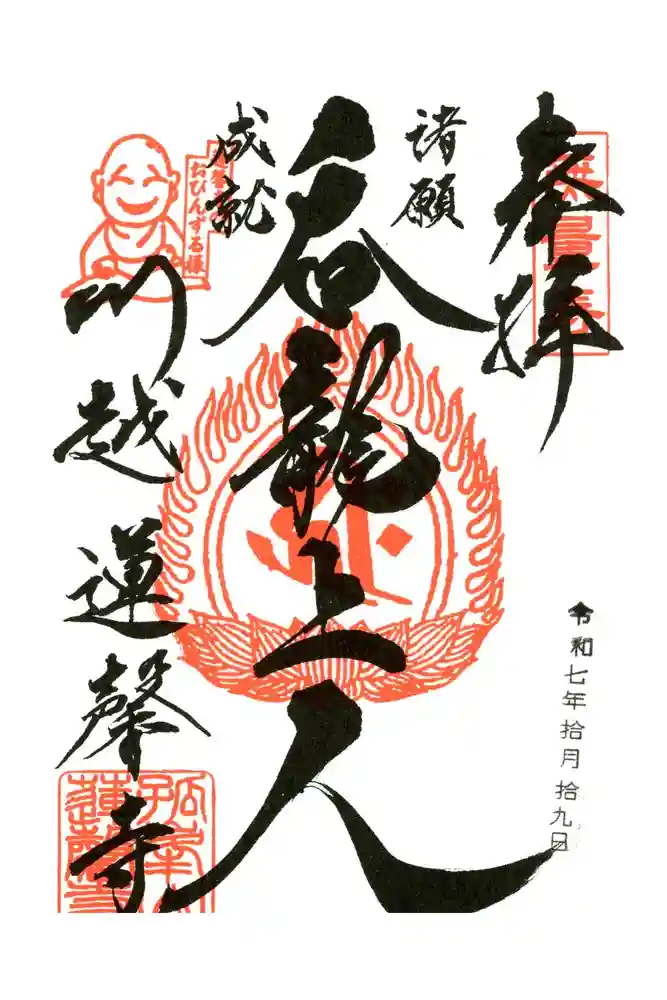 奉拝
諸願
成就
呑龍上人
川越蓮馨寺
おびんずる様
令和七年拾月拾九日